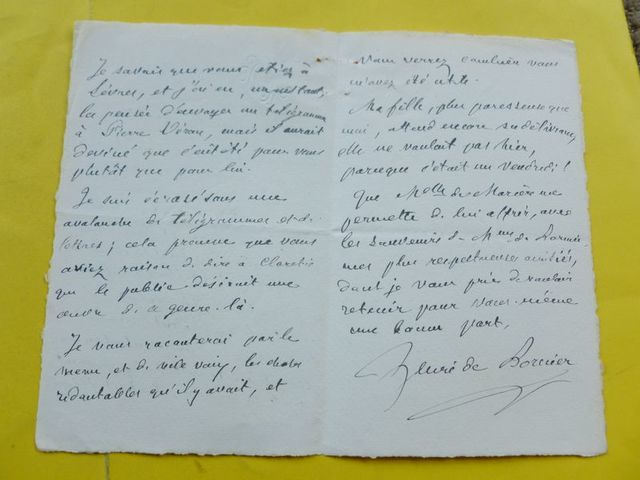 Je savais que vous étiez à
Sèvres, et j'ai eu, un instant,
la pensée d'envoyer un télégramme
à Pierre Véron, mais il aurait
deviné que c'eût été pour vous
plutôt que pour lui.
Je suis écrasé sous une
avalanche de télégrammes et de
lettres; cela prouve que vous
aviez raison de dire à Claretie
que le public désirait une
œuvre de ce genre-là.
Je vous raconterai par le
menu, et de vive voix, les choses
redoutables qu'il y avait, et
Vous verrez combien vous
m'avez été utile.
Ma fille, plus paresseuse que
moi, attend encore sa délivrance,
elle ne voulait pas hier,
parce que c'était un vendredi!
Que Melle de
permette de lui offrir, avec
les souvenirs de Mme de Bornier
mes plus respectueuses amitiés,
dont je vous prie de vouloir
retenir pour vous-même
une bonne part,
Henri de Bornier